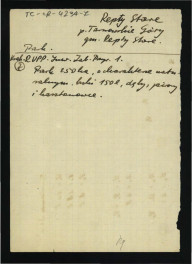 TC-OP-4234-1
Repty Stare
p. Tarnowskie Góry
gm. Repty Stare.
Park.
UPP. Inw. Zab. Przyr. 1.
Park 250 ha, o charakterze natu-
ralnym. buki 150 l, dęby, sosny
i kasztanowce.